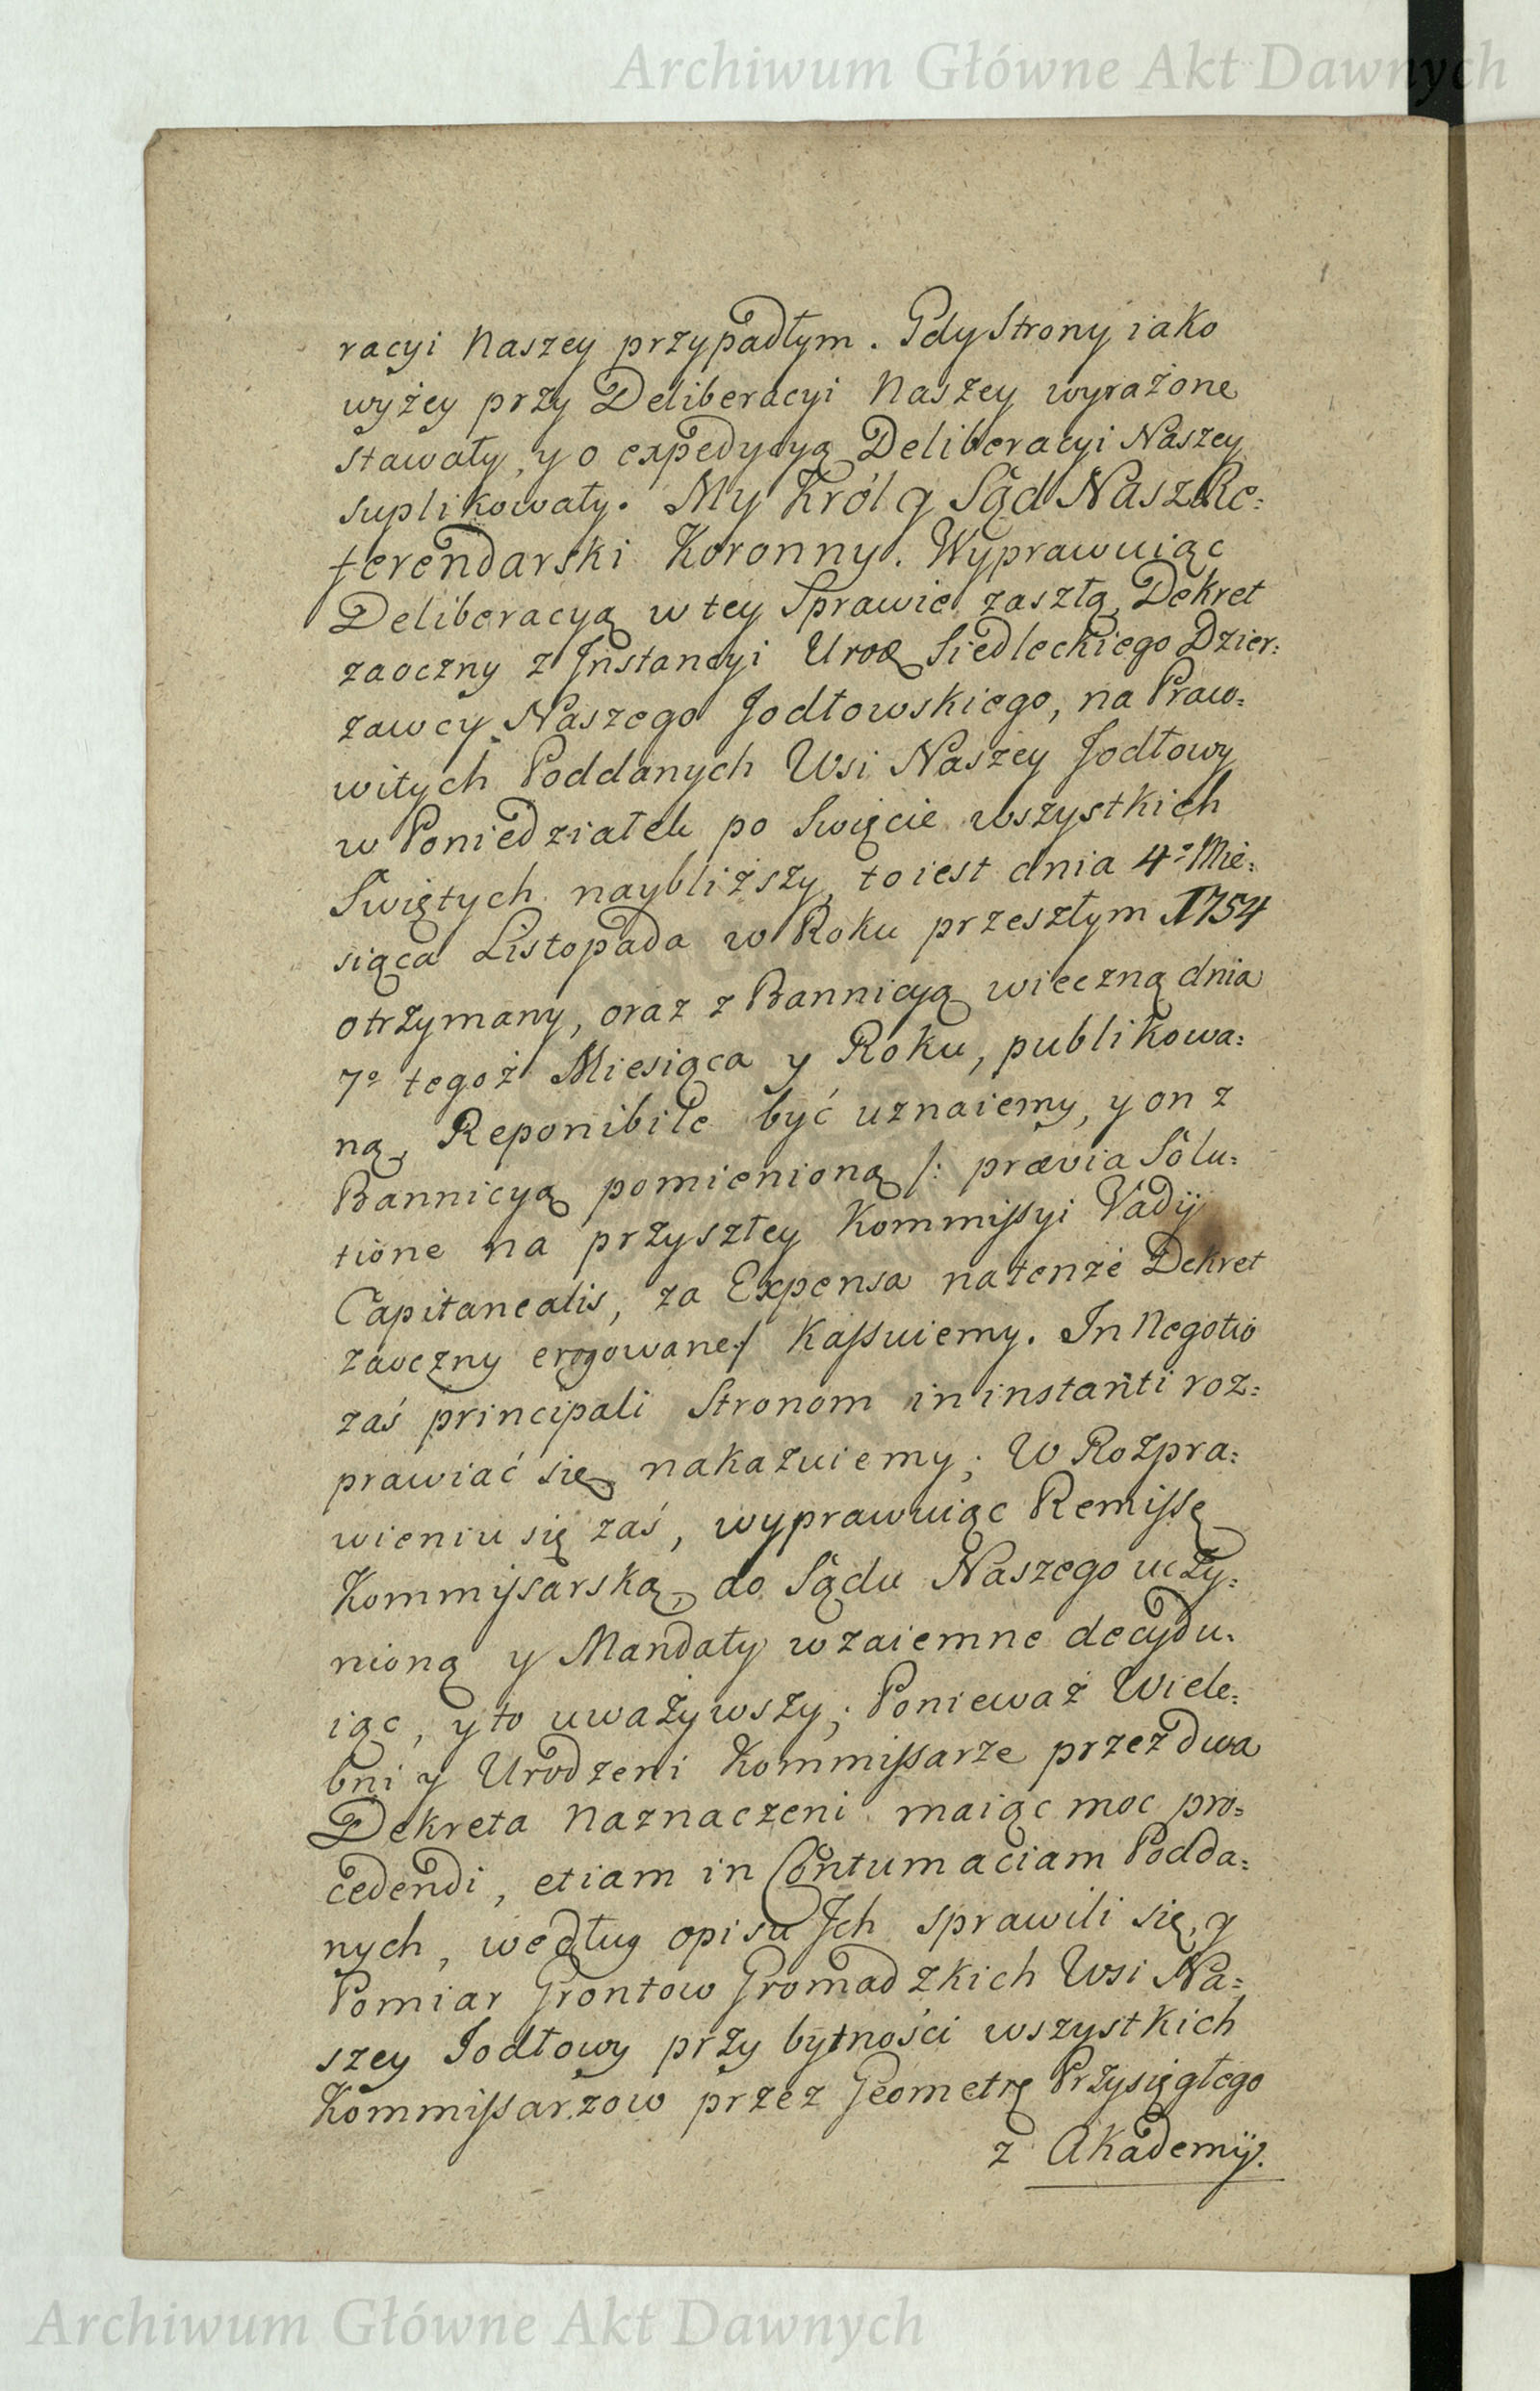 Archiwum Główne Akt Dawnych
racyi Naszey przypadłym. Gdy Strony iako
wyżey przy Deliberacyi Naszey wyrażone
stawały, y o expedycyą Deliberacyi Naszey
suplikowały. My Król y Sąd Nasz Re=
ferendarski Koronny. Wyprawuiąc
Deliberacyą w tey Sprawie zaszłą, Dekret
zaoczny z Instancyi Urod Siedleckiego Dzier=
zawcy Naszego Jodłowskiego, na Praw=
witych Poddanych Wsi Naszey Jodłowy
w Poniedziałek po Swięcie wszystkich
Swiętych naybliższy, to iest dnia 4º Mie=
siąca Listopada w Roku przeszłym 1754
otrzymany, oraz z Bannicyą wieczną dnia
7º tegoż Miesiąca y Roku, publikowa=
ną, Reponibile być uznaiemy, y on z
Bannicyą pomienioną /: prævia Solu=
tione na przyszłey Kommissyi Vadij
Capitanealis, za Expensa na tenże Dekret
zaoczny erogowane :/ Kassuiemy. In Negotio
zaś principali Stronom in instanti roz=
prawiać się nakazuiemy; W Rozpra=
wieniu się zaś, wyprawuiąc Remissę
Kommissarską, do Sądu Naszego uczy=
nioną y Mandaty wzaiemne decydu=
iąc, y to uważywszy; Ponieważ Wiele=
bni y Urodzeni Kommissarze przez dwa
Dekreta Naznaczeni maiąc moc pro=
cedendi, etiam in Contumaciam Podda=
nych, według opisu Ich sprawili się, y
Pomiar Grontow Gromadzkich Wsi Na=
szey Jodłowy przy bytności wszystkich
Kommissarzow przez Geometrę Przysięgłego
z Akademij.
Archiwum Główne Akt Dawnych